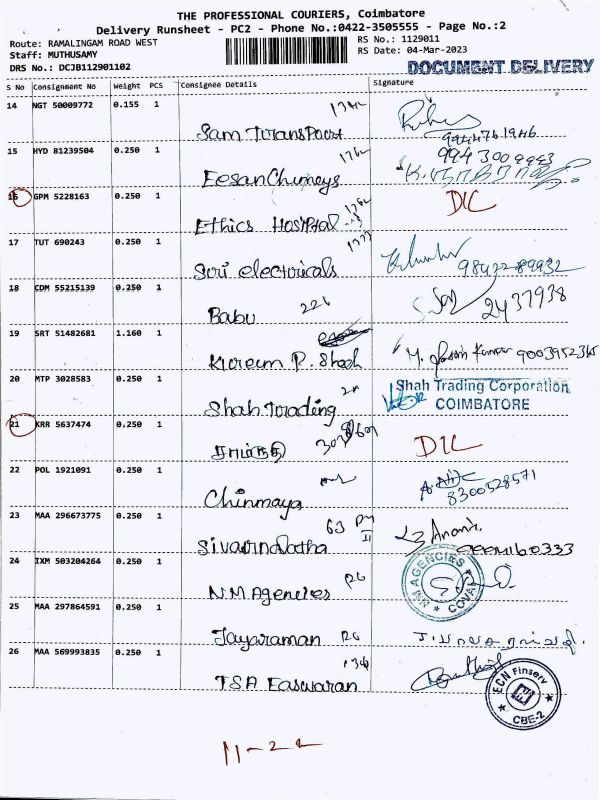 THE PROFESSIONAL COURIERS, Coimbatore
Delivery Runsheet - PC2 - Phone No.:0422-3505555 - Page No.:2
Route: RAMALINGAM ROAD WEST
RS No.: 1129011
Staff: MUTHUSAMY
RS Date: 04-Mar-2023
DRS No.: DCJB112901102
DOCUMENT DELIVERY
S No Consignment No Weight PCS Consignee Details Signature
14 NGT 50009772 0.155 1
Sam Transport
9944761946
15 HYD 81239504 0.250 1
9943009993
Eesan Chimneys
16 GPM 5228163 0.250 1
Ethics Hospital
DLC
17 TUT 690243 0.250 1
Sori electoricals 9842289932
18 CDM 55215139 0.250 1
Babu 226 2437938
19 SRT 51482681 1.160 1
Kareem P. Shah 9003952365
20 MTP 3028583 0.250 1
Shah Trading
Shah Trading Corporation
COIMBATORE
21 KRR 5637474 0.250 1
DLC
22 POL 1921091 0.250 1
Chinmaya
8300528571
23 MAA 296673775 0.250 1
63
Anand
24 IXM 503204264 0.250 1
N.M Agencies RG
NM AGENCIES COVAI
25 MAA 297864591 0.250 1
Jayaraman RG
26 MAA 569993835 0.250 1
TSA Easwaran
ECN Finserv
CBE-2
11-22